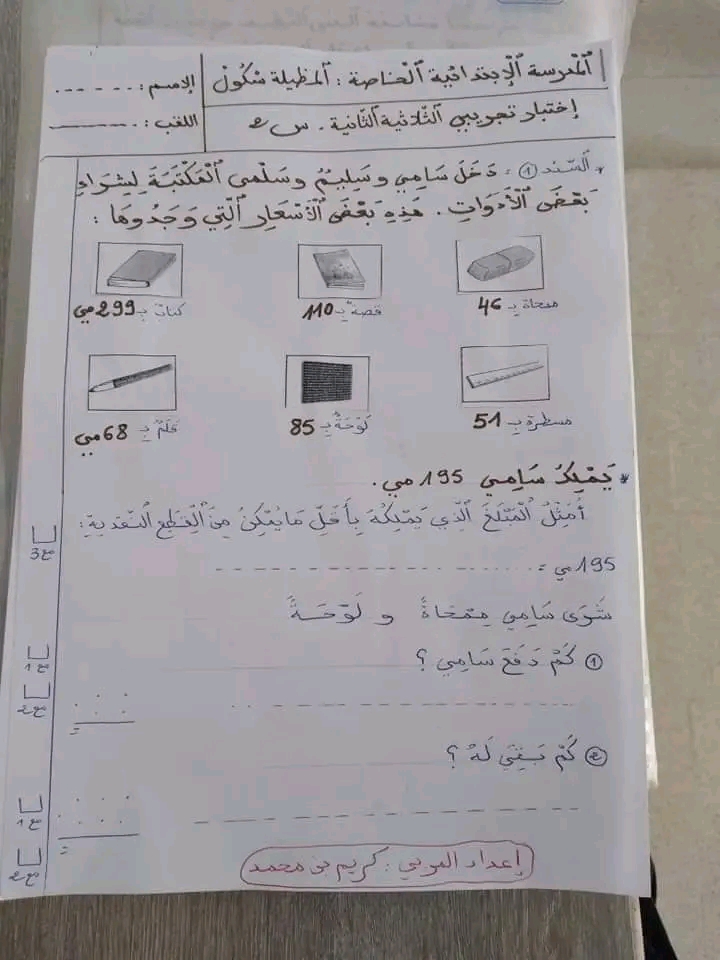 المدرسة الإبتدائية الخاصة : المظيلة سكول
الإسم :
إختبار تجريبي الثلاثية الثانية . س 2
اللقب :
* السند ① : دَخَلَ سَامِي وسَلِيمُ وسَلْمى المَكْتَبَةَ لِشِرَاءِ
بَعْضِ الأَدَوَاتِ . هَذِهِ بَعْضُ الأَسْعَارِ الَّتِي وَجَدُوهَا :
ممحاة بـ 46
قصة بـ 110
كتاب بـ 299 مي
مسطرة بـ 51
لَوْحَةٌ بِـ 85
قَلَمٌ بِـ 68 مي
* يَمْلِكُ سَامِي 195 مي .
أُمَثِّلُ الْمَبْلَغَ الَّذِي يَمْلِكُهُ بِأَقَلِّ مَا يُمْكِنُ مِنَ الْقِطَعِ النَّقْدِيَّةِ :
مع3
195 مي =
شَرَى سَامِي مِمْحَاةً و لَوْحَةً
① كَمْ دَفَعَ سَامِي ؟
مع1
مع2
② كَمْ بَقِيَ لَهُ ؟
مع1
مع2
إعداد المربي : كريم بن محمد